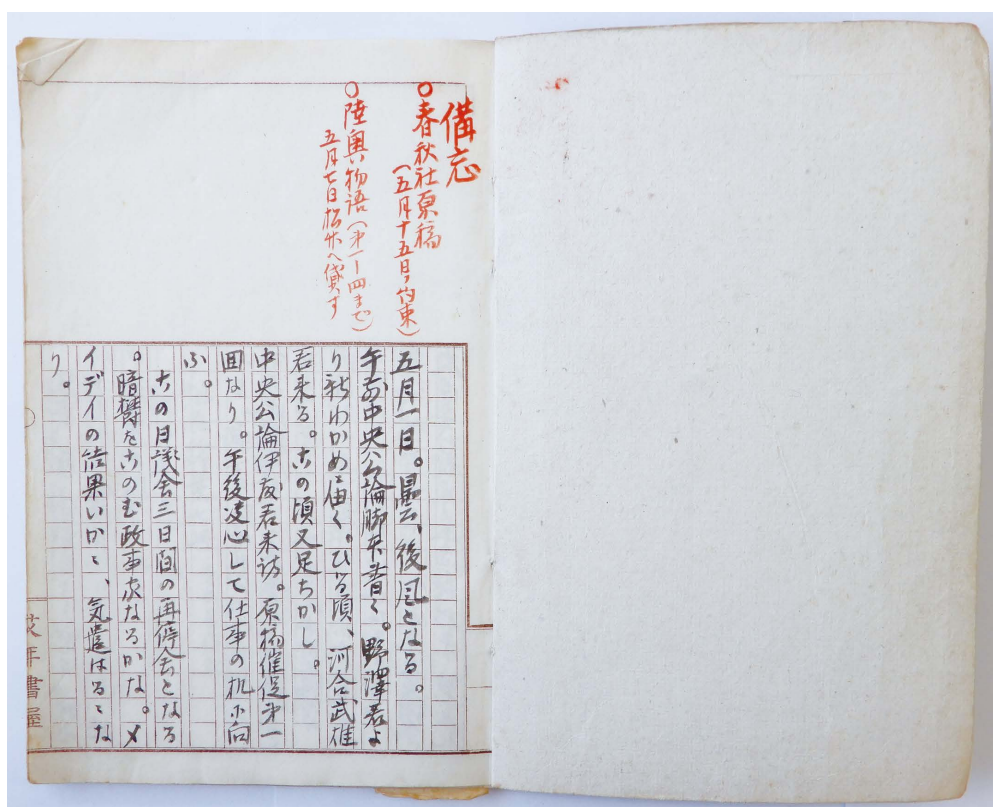 備忘
○春秋社原稿
(五月十五日ノ約束)
○陸奥物語(第一ー四まで)
五月七日松竹へ貸す
五月一日。曇、後風となる。
午前中央公論脚本書く。野澤君よ
り新わかめ届く。ひる頃、河合武雄
君来る。この頃又足ちかし。
中央公論伊藤君来訪。原稿催促第一
回なり。午後決心して仕事の机に向
ふ。
この日議会三日間の再停会となる
。暗鬱をこのむ政事家なるかな。メ
イデイの結果いかゞ、気遣はるゝな
り。
年書屋